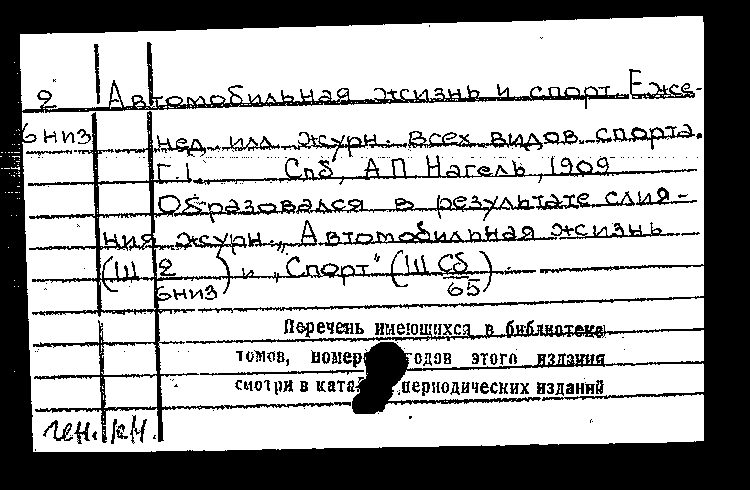 2 Автомобильная жизнь и спорт. Еже-
6низ нед. илл. журн. всех видов спорта.
Г.1. Спб, А.П. Нагель, 1909
Образовался в результате слия-
ния журн. „Автомобильная жизнь
(Ш 2/6низ) и „Спорт" (Ш Сб/65)
Перечень имеющихся в библиотеке
томов, номеров годов этого издания
смотри в катал периодических изданий
ген. кат.